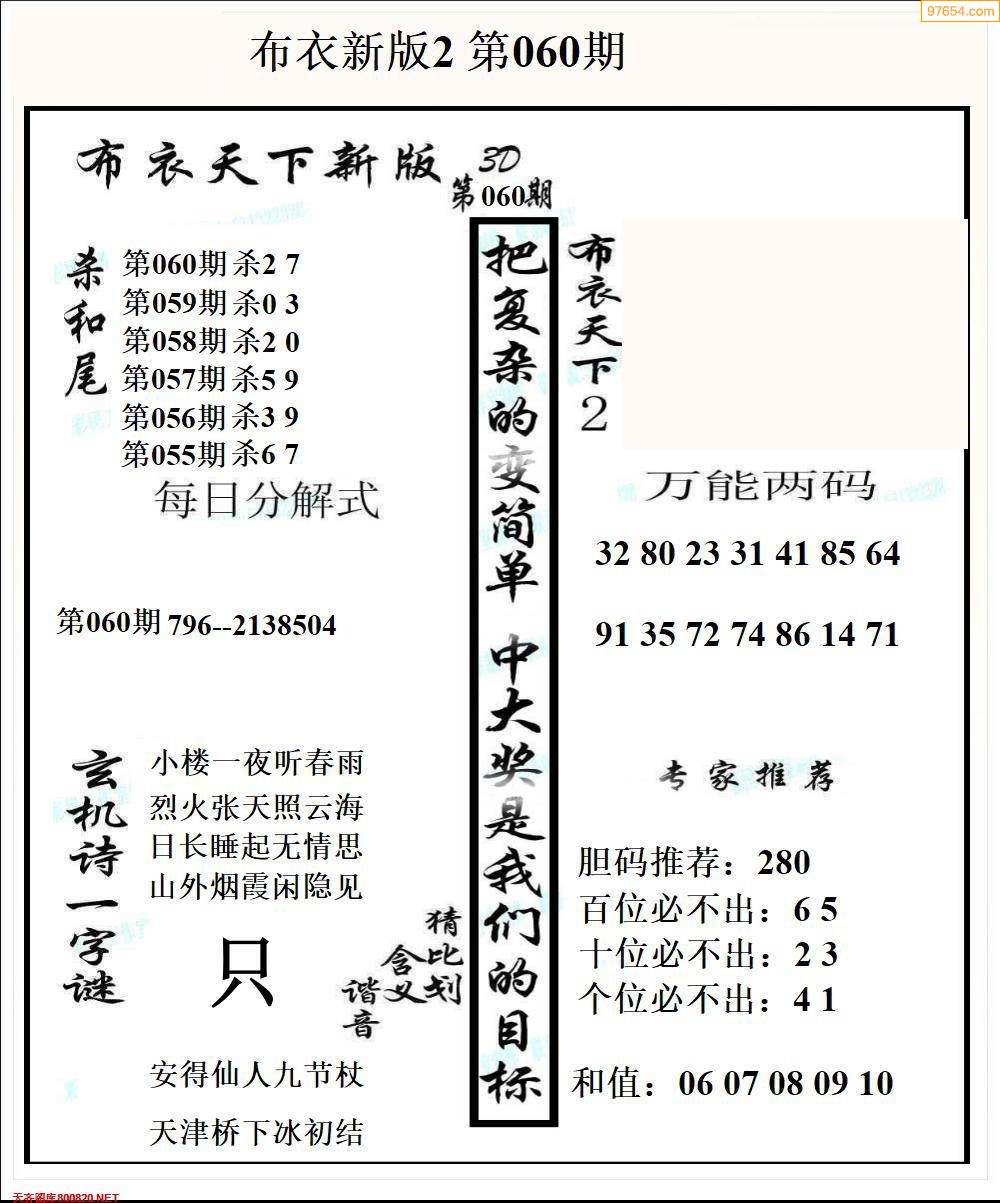 97654.com
布衣新版2 第060期
布衣天下新版 3D
第060期
杀和尾
第060期 杀2 7
第059期 杀0 3
第058期 杀2 0
第057期 杀5 9
第056期 杀3 9
第055期 杀6 7
每日分解式
第060期 796--2138504
玄机诗一字谜
小楼一夜听春雨
烈火张天照云海
日长睡起无情思
山外烟霞闲隐见
只
猜比划
含义
谐音
安得仙人九节杖
天津桥下冰初结
把复杂的变简单 中大奖是我们的目标
布衣天下2
万能两码
32 80 23 31 41 85 64
91 35 72 74 86 14 71
专家推荐
胆码推荐：280
百位必不出：6 5
十位必不出：2 3
个位必不出：4 1
和值：06 07 08 09 10
天齐图库800820.NET